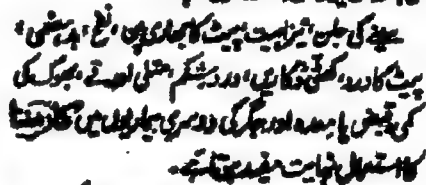 سینے کی جلن، تیزابیت، پیٹ کا بھاری پن، نفخ، بدہضمی،
پیٹ کا درد، کھٹی ڈکاریں، درد شکم، متلی اور قے، بھوک کی
کمی، قبض یا معدہ اور جگر کی دوسری بیماریوں میں
کا استعمال نہایت مفید ہوتا ہے۔